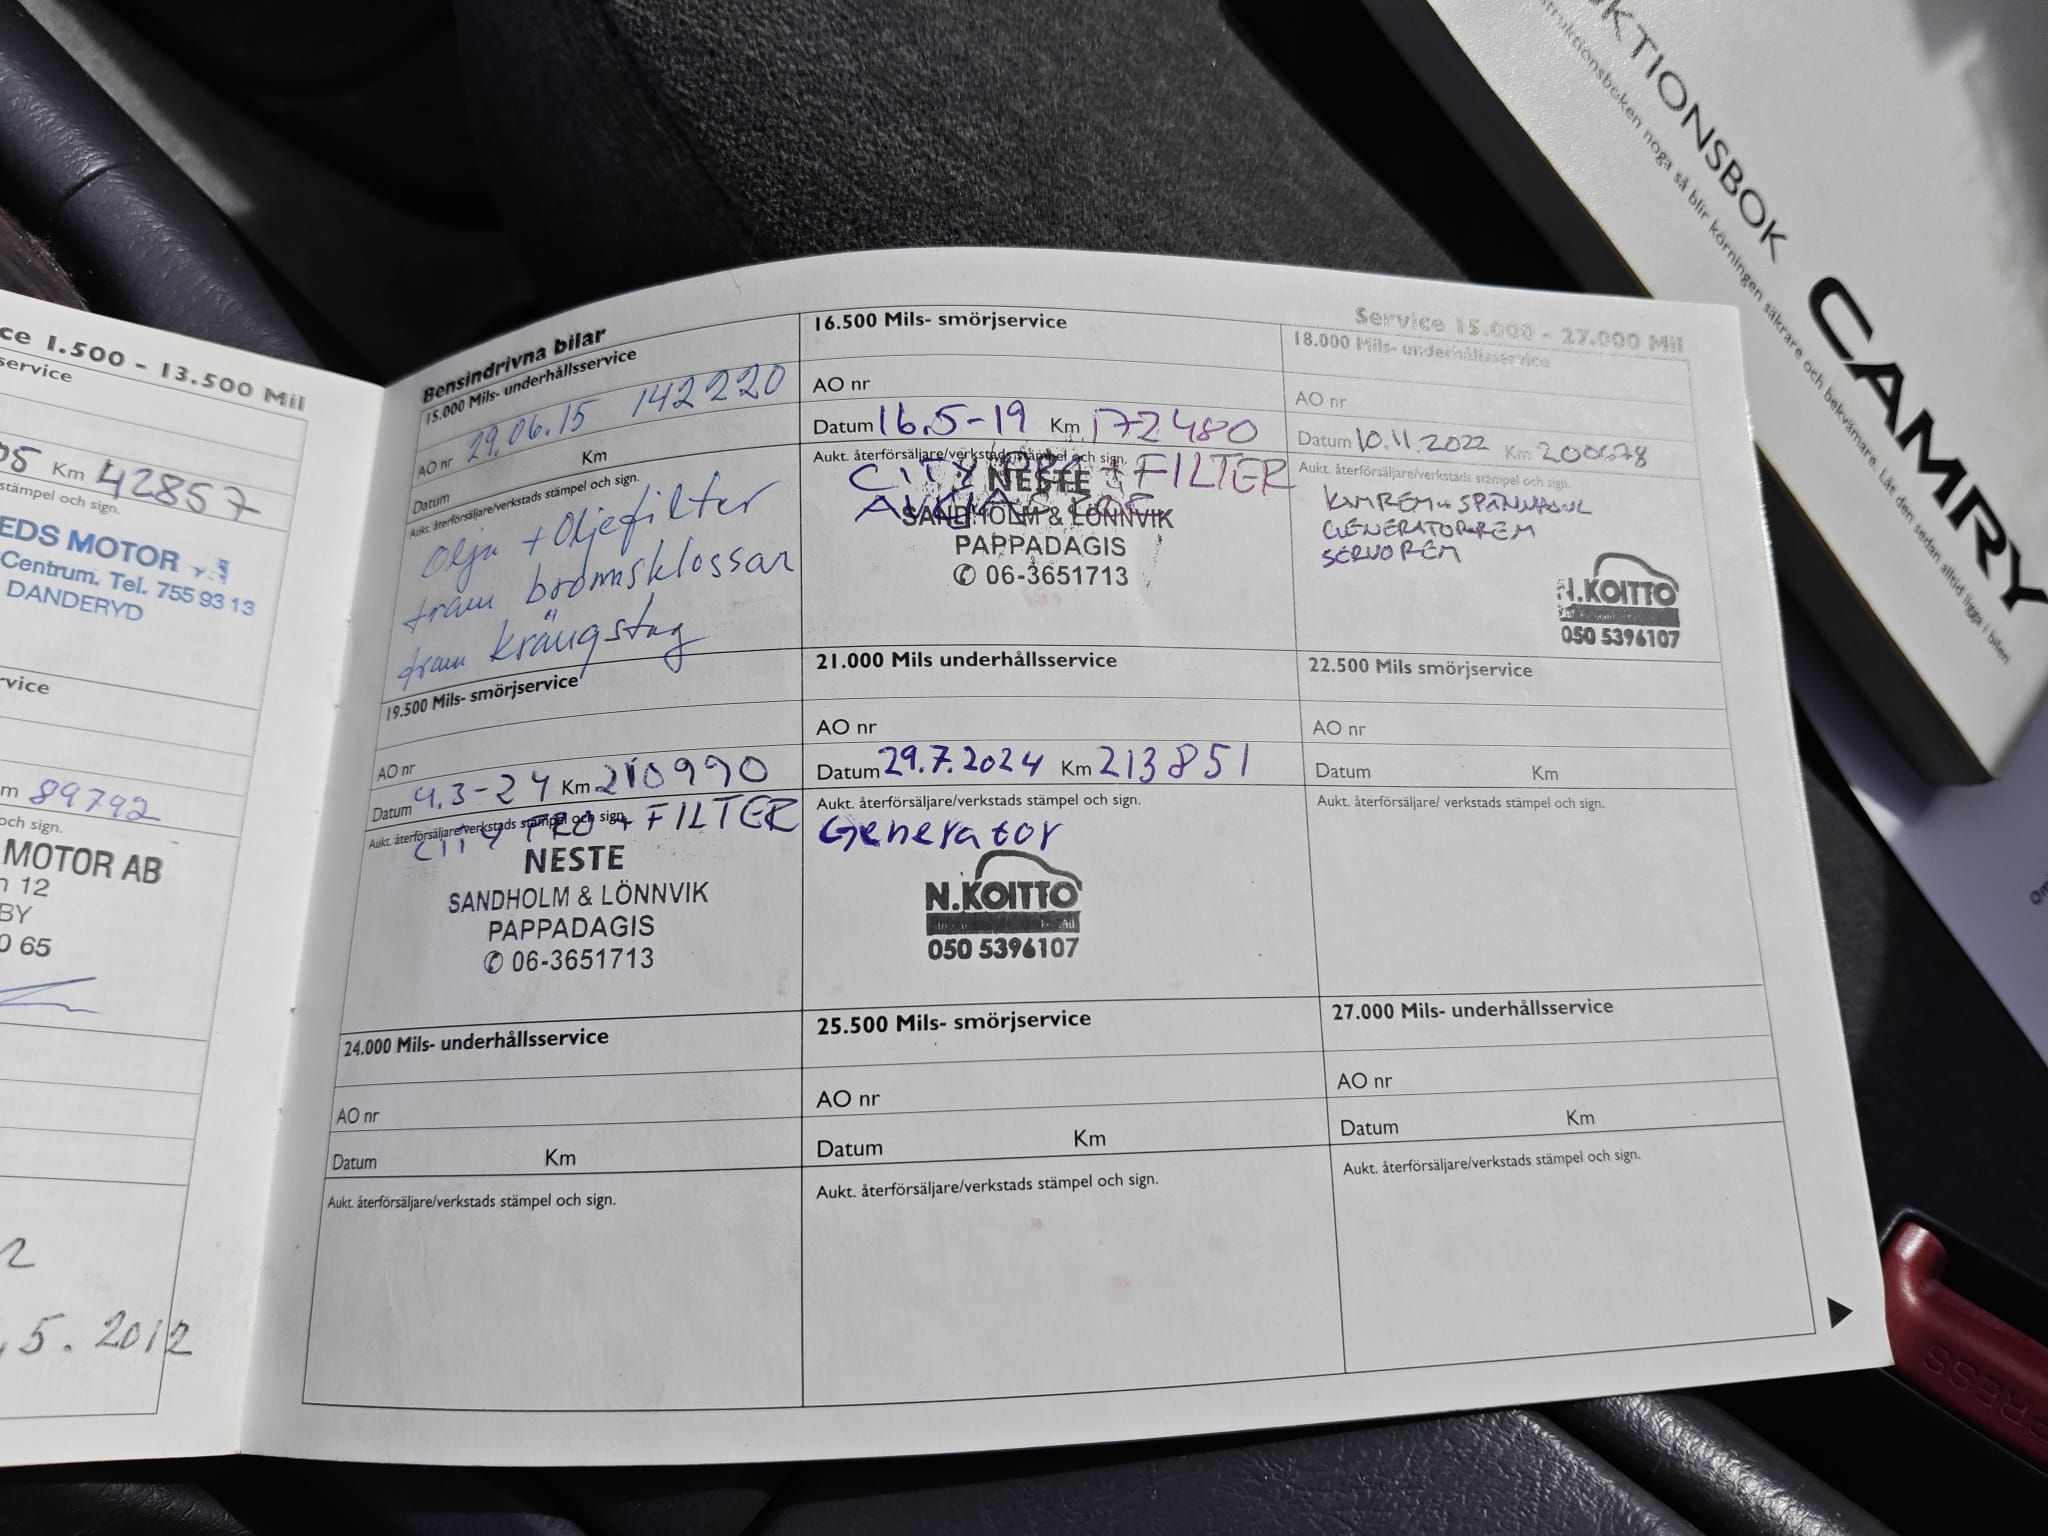 ce 1.500 - 13.500 Mil
service
05 Km 42857
stämpel och sign.
EDS MOTOR
Centrum. Tel. 755 93 13
DANDERYD
rvice
m 89792
och sign.
MOTOR AB
n 12
BY
0 65
2
.5. 2012
Bensindrivna bilar
Service 15.000 - 27.000 Mil
15.000 Mils- underhållsservice
29.06.15 142220
AO nr
Km
Datum
Aukt. återförsäljare/verkstads stämpel och sign.
Olja + Oljefilter
fram bromsklossar
fram krängstag
16.500 Mils- smörjservice
AO nr
Datum 16.5-19 Km 172480
Aukt. återförsäljare/verkstads stämpel och sign.
CITY PRO + FILTER
NESTE
SANDHOLM & LÖNNVIK
PAPPADAGIS
✆ 06-3651713
18.000 Mils- underhållsservice
AO nr
Datum 10.11.2022 Km 200678
Aukt. återförsäljare/verkstads stämpel och sign.
KAMREM + SPÄNNHJUL
GENERATORREM
SERVO REM
N.KOITTO
050 5396107
19.500 Mils- smörjservice
AO nr
Datum 4.3-24 Km 210990
Aukt. återförsäljare/verkstads stämpel och sign.
CITY PRO + FILTER
NESTE
SANDHOLM & LÖNNVIK
PAPPADAGIS
✆ 06-3651713
21.000 Mils underhållsservice
AO nr
Datum 29.7.2024 Km 213851
Aukt. återförsäljare/verkstads stämpel och sign.
Generator
N.KOITTO
050 5396107
22.500 Mils smörjservice
AO nr
Datum Km
Aukt. återförsäljare/ verkstads stämpel och sign.
24.000 Mils- underhållsservice
AO nr
Datum Km
Aukt. återförsäljare/verkstads stämpel och sign.
25.500 Mils- smörjservice
AO nr
Datum Km
Aukt. återförsäljare/verkstads stämpel och sign.
27.000 Mils- underhållsservice
AO nr
Datum Km
Aukt. återförsäljare/verkstads stämpel och sign.
UKTIONSBOK CAMRY
struktionsboken noga så blir körningen säkrare och bekvämare. Låt den sedan alltid ligga i bilen
PRESS